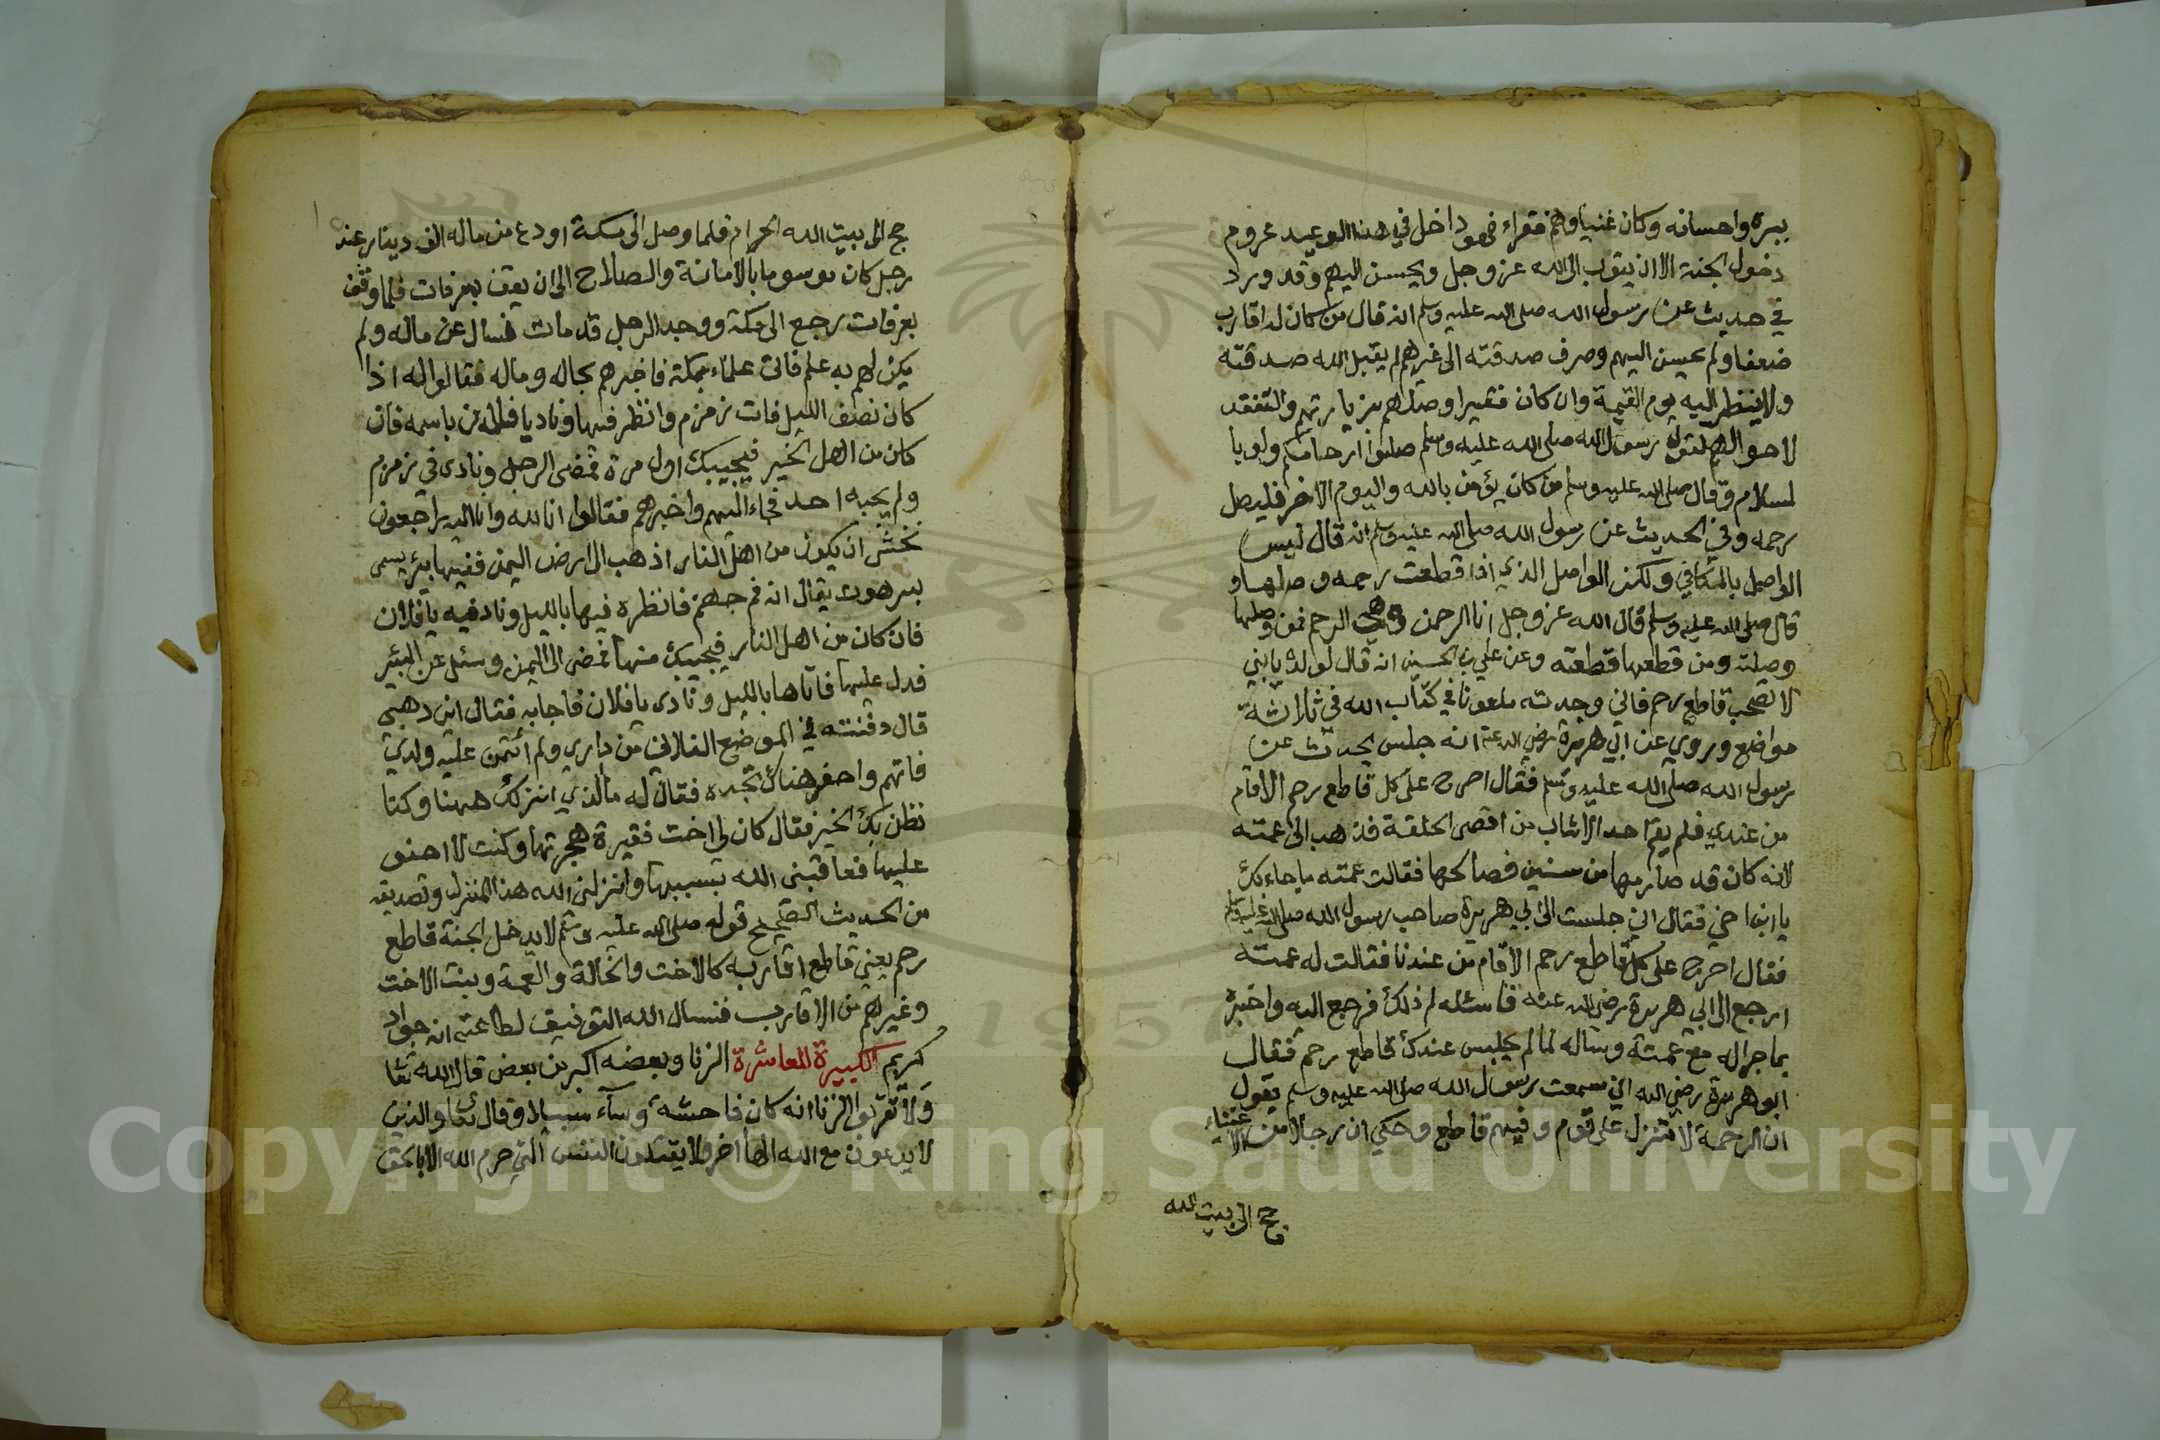 ببره واحسانه وكان غنيا وهم فقراء فهو داخل في هذا الوعيد محروم
دخول الجنة الا ان يتوب الى الله عز وجل ويحسن اليهم وقد ورد
في حديث عن رسول الله صلى الله عليه وسلم انه قال من كان له اقارب
ضعفا ولم يحسن اليهم وصرف صدقته الى غيرهم لم يقبل الله صدقته
ولا ينظر اليه يوم القيمة وان كان فقيرا وصلهم بزيارتهم والتفقد
لاحوالهم لقول رسول الله صلى الله عليه وسلم صلوا ارحامكم ولو با
لسلام وقال صلى الله عليه وسلم من كان يؤمن بالله واليوم الاخر فليصل
رحمه وفي الحديث عن رسول الله صلى الله عليه وسلم انه قال ليس
الواصل بالمكافي ولكن الواصل الذي اذا قطعت رحمه وصلها و
قال صلى الله عليه وسلم قال الله عز وجل انا الرحمن وهي الرحم فمن وصلها
وصلته ومن قطعها قطعته وعن علي بن الحسين انه قال لولده يا بني
لا تصحب قاطع رحم فاني وجدته ملعونا في كتاب الله في ثلاثة
مواضع وروي عن ابي هريرة رضي الله عنه انه جلس يحدث عن
رسول الله صلى الله عليه وسلم فقال احرج على كل قاطع رحم الا قام
من عندي فلم يقم احد الا شاب من اقصى الحلقة فذهب الى عمته
لانه كان قد صارمها من سنين فصالحها فقالت عمته ما جاء بك
يا ابن اخي فقال اني جلست الى ابي هريرة صاحب رسول الله صلى الله عليه وسلم
فقال احرج على كل قاطع رحم الا قام من عندنا فقالت له عمته
ارجع الى ابي هريرة رضي الله عنه فاسئله لم ذلك فرجع اليه واخبره
بما جرا له مع عمته وساله لما لم يجلس عندك قاطع رحم فقال
ابو هريرة رضي الله اني سمعت رسول الله صلى الله عليه وسلم يقول
ان الرحمة لا تنزل على قوم وفيهم قاطع وحكي ان رجلا من الاغنياء
حج الى بيت الله
حج الى بيت الله الحرام فلما وصل الى مكة اودع من ماله الف دينار عند
رجل كان موسوما بالامانة والصلاح الى ان يقف بعرفات فلما وقف
بعرفات رجع الى مكة ووجد الرجل قد مات فسال عن ماله ولم
يكن لهم به علم فاتى علماء مكة فاخبرهم بحاله وماله فقالوا له اذا
كان نصف الليل فات زمزم وانظر فيها وناد يا فلان باسمه فان
كان من اهل الخير فيجيبك اول مرة فمضى الرجل ونادى في زمزم
ولم يجبه احد فجاء اليهم واخبرهم فقالوا انا لله وانا اليه راجعون
نخشى ان يكون من اهل النار اذهب الى ارض اليمن ففيها بئر يسمى
برهوت يقال انه فم جهنم فانظره فيها بالليل وناد فيه يا فلان
فان كان من اهل النار فيجيبك منها فمضى الى اليمن وسئل عن البئر
فدل عليها فاتاها بالليل ونادى يا فلان فاجابه فقال اين ذهبي
قال دفنته في الموضع الفلاني من داري ولم أئتمن عليه ولدي
فاتهم واحفر هناك تجده فقال له ما الذي انزلك ههنا وكنا
نظن بك الخير فقال كان لي اخت فقيرة هجرتها وكنت لا احنو
عليها فعاقبني الله بسببها وانزلني الله هذا المنزل وتصديق
من الحديث الصحيح قوله صلى الله عليه وسلم لا يدخل الجنة قاطع
رحم يعني قاطع اقاربه كالاخت والخالة والعمة وبنت الاخت
وغيرهم من الاقارب فنسال الله التوفيق لطاعته انه جواد
كريم الكبيرة العاشرة الزنا وبعضه اكبر من بعض قال الله تعا
ولا تقربوا الزنا انه كان فاحشة وسآء سبيلا وقال تعا والذين
لا يدعون مع الله الها اخر ولا يقتلون النفس التي حرم الله الا بالحق
Copyright © King Saud University
1957